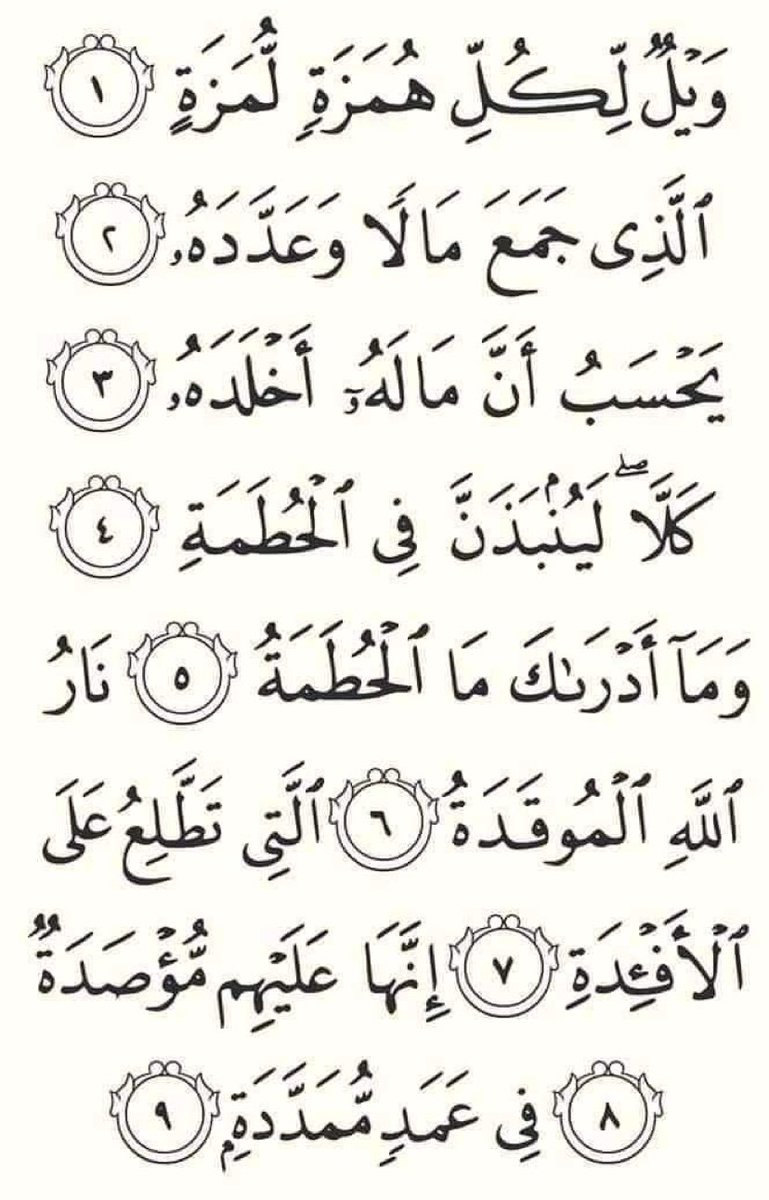 وَيْلٌ لِّكُلِّ هُمَزَةٍ لُّمَزَةٍ ١
ٱلَّذِى جَمَعَ مَالًا وَعَدَّدَهُۥ ٢
يَحْسَبُ أَنَّ مَالَهُۥٓ أَخْلَدَهُۥ ٣
كَلَّا ۖ لَيُنۢبَذَنَّ فِى ٱلْحُطَمَةِ ٤
وَمَآ أَدْرَىٰكَ مَا ٱلْحُطَمَةُ ٥ نَارُ
ٱللَّهِ ٱلْمُوقَدَةُ ٦ ٱلَّتِى تَطَّلِعُ عَلَى
ٱلْأَفْـِٔدَةِ ٧ إِنَّهَا عَلَيْهِم مُّؤْصَدَةٌ
٨ فِى عَمَدٍ مُّمَدَّدَةٍۭ ٩